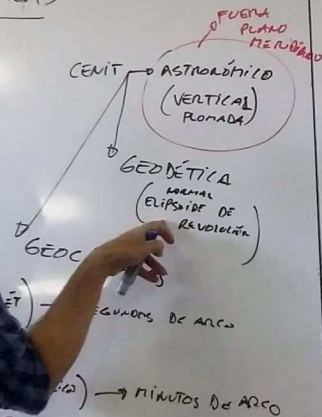 FUERA
PLANO
MERIDIANO
CENIT → ASTRONÓMICO
(VERTICAL
PLOMADA)
GEODÉTICA
(NORMAL
ELIPSOIDE DE
REVOLUCIÓN)
GEOC
DE ARCO
→ MINUTOS DE ARCO